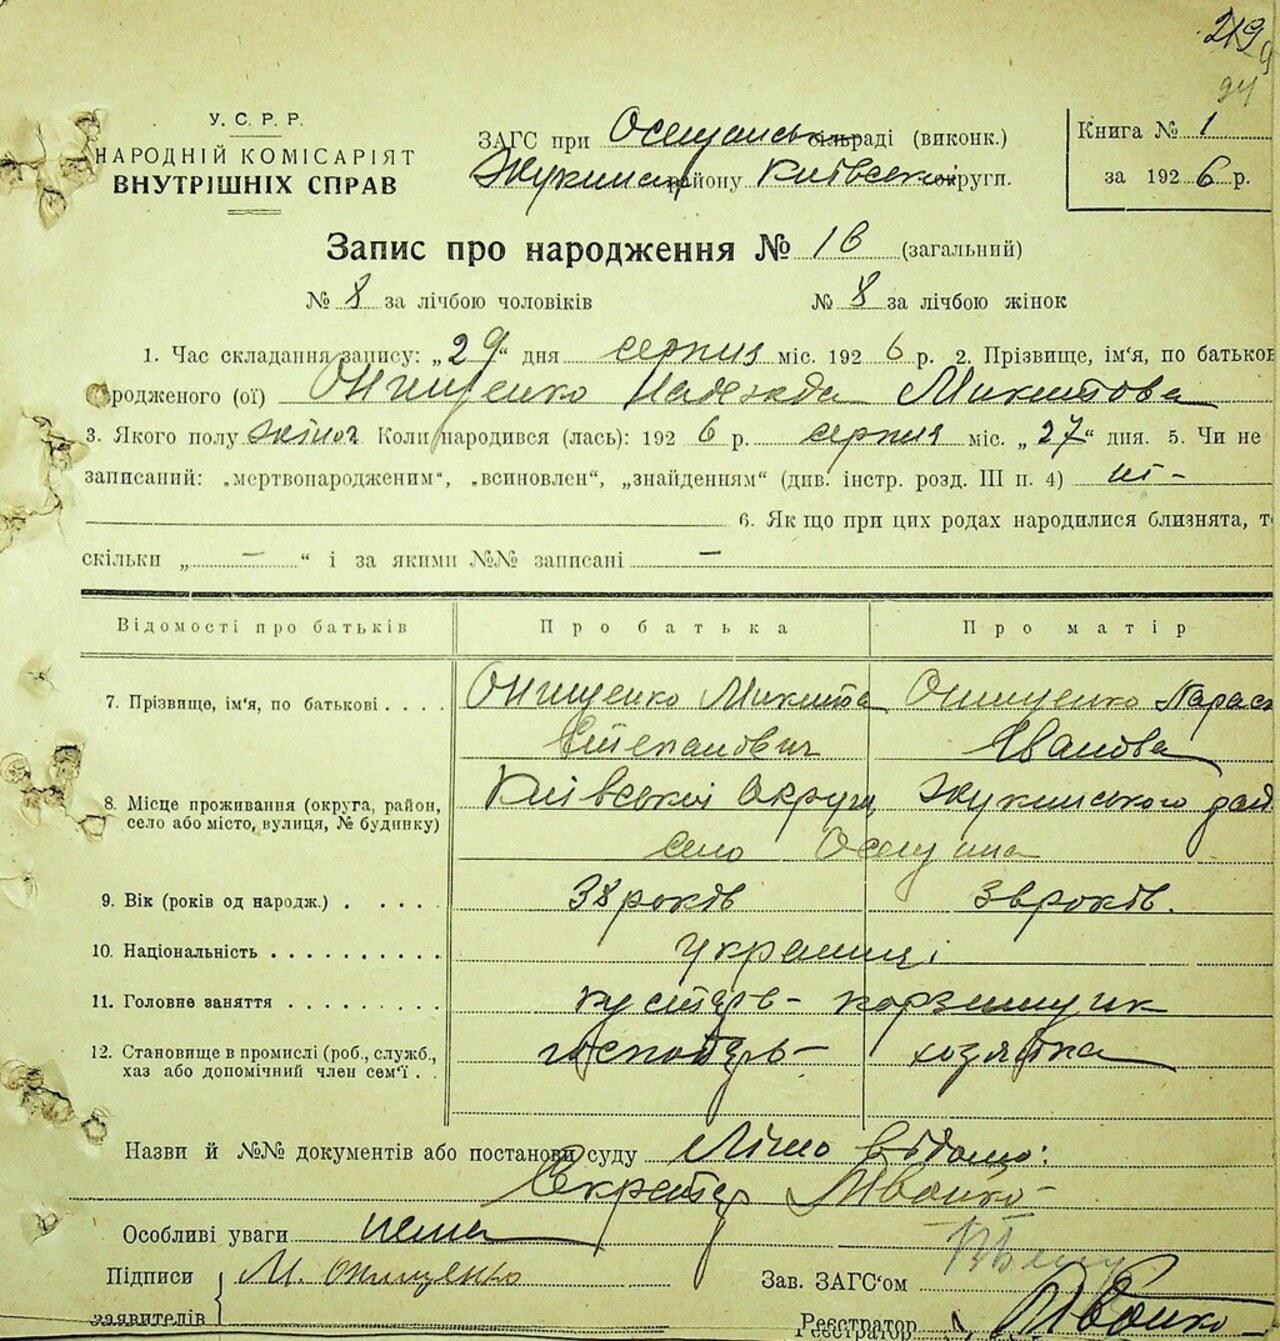 219
94
У. С. Р. Р.
НАРОДНІЙ КОМІСАРІЯТ
ВНУТРІШНІХ СПРАВ
ЗАГС при Осещанськ сільраді (виконк.)
Жукинськ району Київської округи.
Книга № 1
за 1926 р.
Запис про народження № 16 (загальний)
№ 8 за лічбою чоловіків № 8 за лічбою жінок
1. Час складання запису: „29“ дня серпня міс. 1926 р. 2. Прізвище, ім‘я, по батькові
народженого (ої) Онищенко Надежда Микитова
3. Якого полу жіноч Коли народився (лась): 1926 р. серпня міс. „27“ дня. 5. Чи не
записаний: „мертвонародженим“, „всиновлен“, „знайденням“ (див. інстр. розд. III п. 4) ні -
6. Як що при цих родах народилися близнята, т
скільки „ — “ і за якими №№ записані —
Відомості про батьків Про батька Про матір
7. Прізвище, ім‘я, по батькові . . . . Онищенко Микита Онищенко Парас
Степанович Іванова
8. Місце проживання (округа, район, Київської округи Жукинського рай
село або місто, вулиця, № будинку)
село Осещина
9. Вік (років од народж.) . . . . . 38 років 36 років.
10. Національність . . . . . . . . . . українці
11. Головне заняття . . . . . . . . . кустарь - корзинщик
12. Становище в промислі (роб., служб., господарь - хозяйка
хаз або допомічний член сем‘ї . .
Назви й №№ документів або постанови суду Лічно відомо:
Секретар МВойко -
Особливі уваги нема
Підписи М. Онищенко Зав. ЗАГС‘ом
заявителів Реєстратор МВойко -